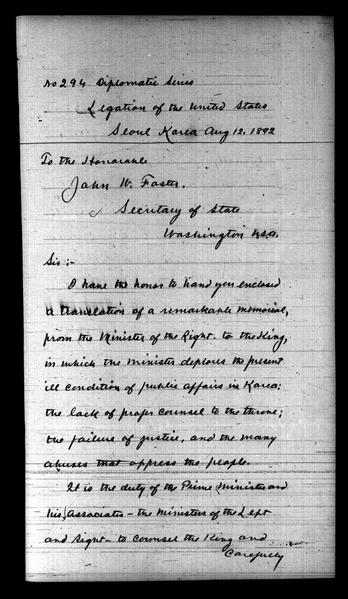 No 294 Diplomatic Series
Legation of the United States
Seoul Korea Aug 12, 1892
To the Honorable
John W. Foster.
Secretary of State
Washington U.S.A.
Sir:-
I have the honor to hand you enclosed
a translation of a remarkable memorial,
from the Minister of the Right. to the King,
in which the Minister deplores the present
ill condition of public affairs in Korea:
the lack of proper counsel to the throne;
the failure of justice, and the many
abuses that oppress the people.
It is the duty of the Prime Minister and
his, Associates - the Ministers of the Left
and Right - to counsel the King and
Carefully